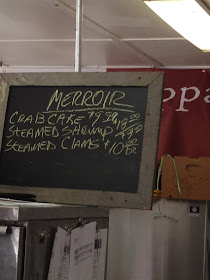 MERROIR
CRAB CAKE
STEAMED SHRIMP
STEAMED CLAMS $10.00
ppa